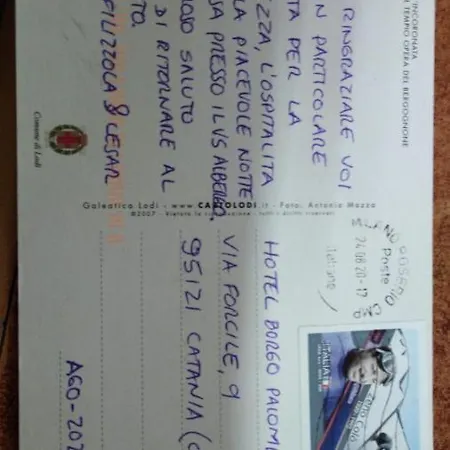 INCORONATA
TEMPIO OPERA DEL BERGOGNONE
RINGRAZIARE VOI
IN PARTICOLARE
PER LA
L'OSPITALITA
PIACEVOLE NOTTE
PRESSO IL VS ALBERGO.
SALUTO
DI RITORNARE AL
& CESAR
Comune di Lodi
Galeatica Lodi - www.CARTOLODI.it - Foto: Antonio Mazza
©2007 - Vietata la riproduzione - tutti i diritti riservati
MILANO ROSERIO
Poste
Italiane
24.08.20-17
HOTEL BORGO PALOM
VIA FORCILE, 9
95121 CATANIA (C
AGO-202
ITALIA